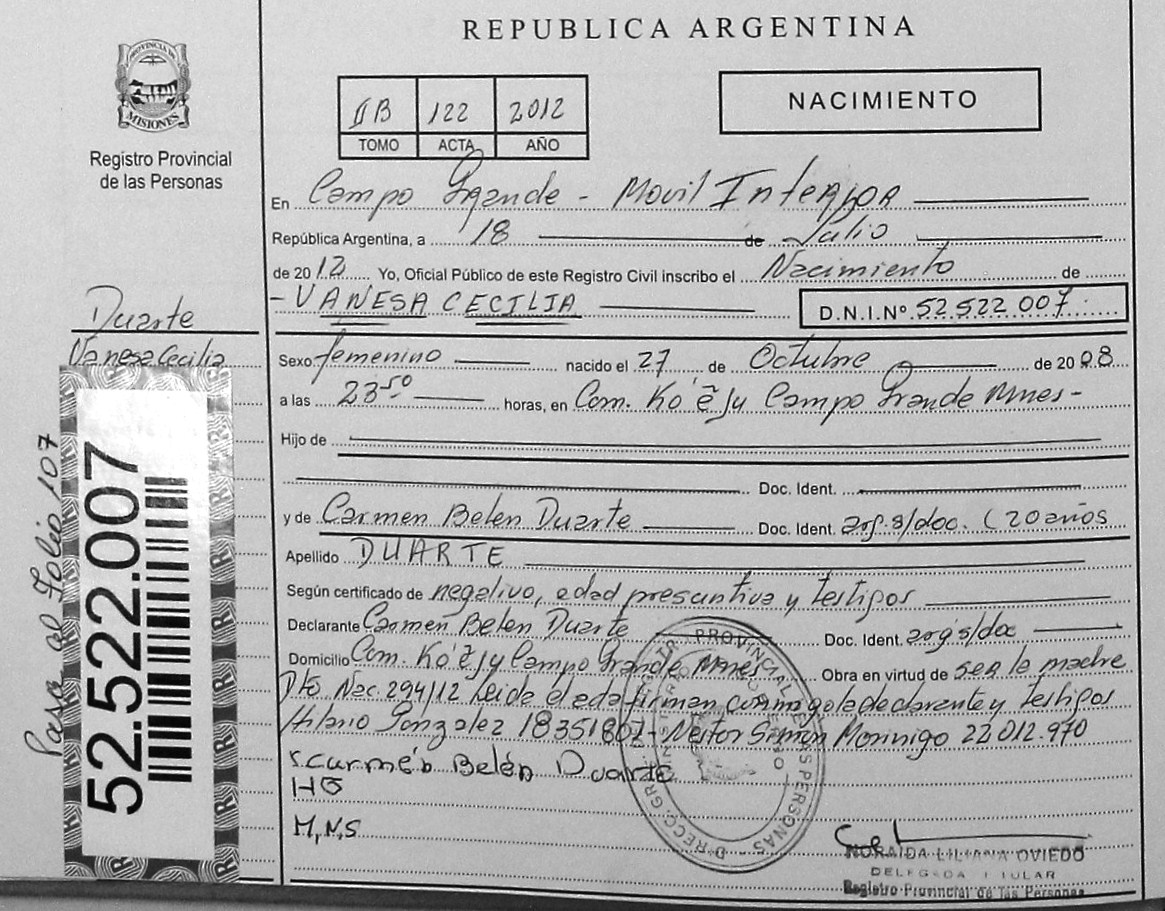 REPUBLICA ARGENTINA
PROVINCIA DE
MISIONES
Registro Provincial
de las Personas
IIB 122 2012
TOMO ACTA AÑO
NACIMIENTO
En Campo Grande - Movil Interior
República Argentina, a 18 de Julio
de 2012 Yo, Oficial Público de este Registro Civil inscribo el Nacimiento de
- VANESA CECILIA
D.N.I.Nº 52.522.007
Duarte
Vanesa Cecilia
Sexo femenino nacido el 27 de Octubre de 2008
a las 23⁵⁰ horas, en Com. Ko'ẽ Ju Campo Grande Mnes-
Hijo de
Doc. Ident.
y de Carmen Belen Duarte Doc. Ident. arg. s/doc. (20 años
Apellido DUARTE
Según certificado de negativo, edad presuntiva y testigos
Declarante Carmen Belen Duarte Doc. Ident. arg s/doc
Domicilio Com. Ko'ẽ Ju Campo Grande Mnes Obra en virtud de ser la madre
Dto Nac. 294/12 Leida el acta firman conmigo la declarante y testigos
Hilario Gonzalez 18351807- Nestor Simon Morinigo 22.012.970
Carmén Belén Duarte
HG
M,N,S
NORAIDA LILIANA OVIEDO
DELEGADA TITULAR
Registro Provincial de las Personas
Pasa al Folio 107
52.522.007